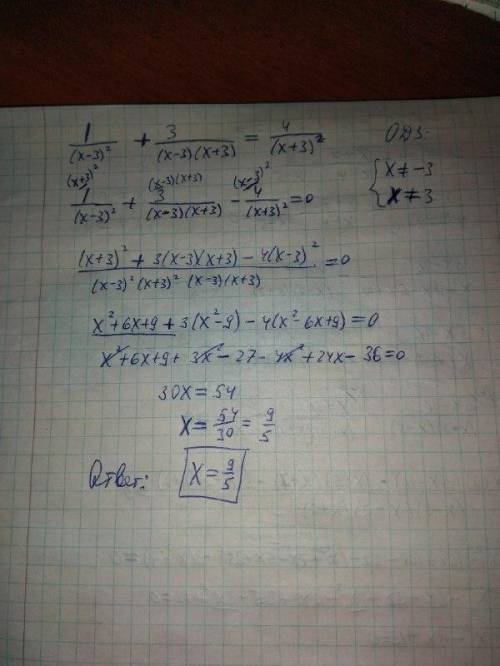 1/(x-3)² + 3/(x-3)(x+3) = 4/(x+3)² ОДЗ:
{ x ≠ -3
x ≠ 3
(x+3)² (x-3)(x+3) (x-3)²
1/(x-3)² + 3/(x-3)(x+3) - 4/(x+3)² = 0
(x+3)² + 3(x-3)(x+3) - 4(x-3)² / (x-3)² (x+3)² (x-3)(x+3) = 0
x²+6x+9 + 3(x²-9) - 4(x²-6x+9) = 0
x²+6x+9 + 3x² - 27 - 4x² + 24x - 36 = 0
30x = 54
x = 54/30 = 9/5
Ответ: x = 9/5